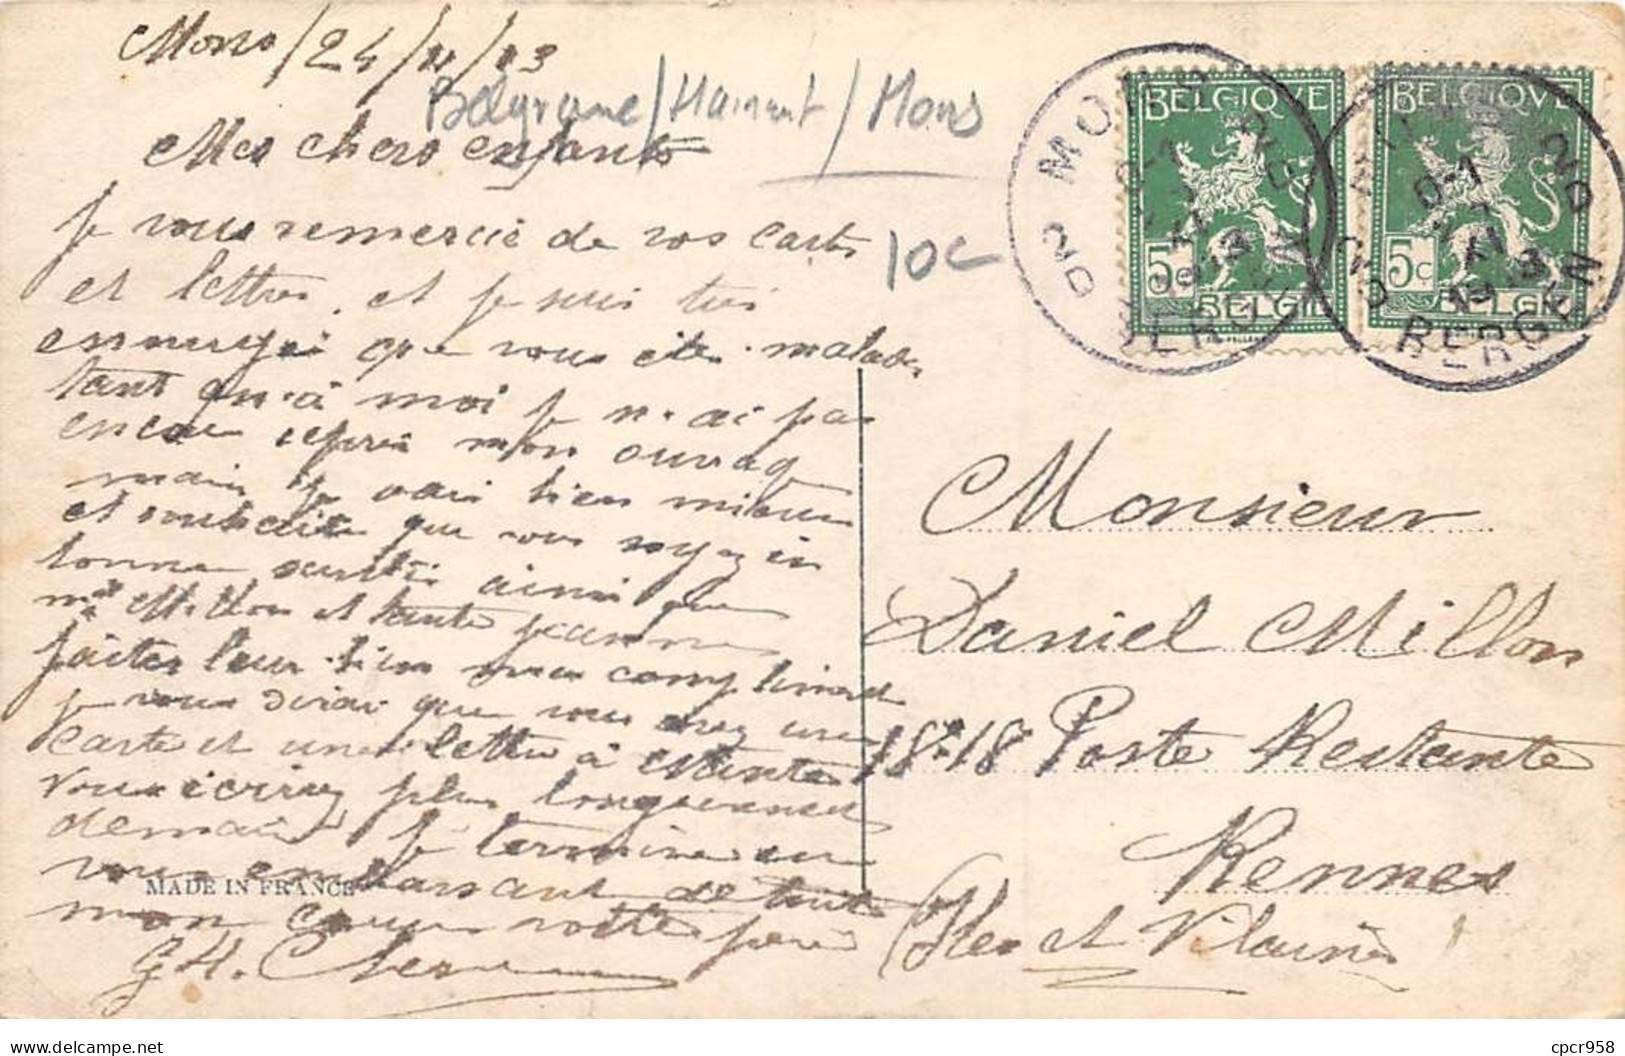 Mons / 24/11/13
Belgique / Hainaut / Mons
Mes chers enfants
je vous remercie de vos cartes
et lettres, et je suis très
ennuyé que vous êtes malades
tant qu'à moi je n'ai pas
encore repris mon ouvrag
mais je vais bien mieux
et souhaite que vous soyez en
bonne santé ainsi que
Millon et tante jeanne
faites leur bien mes compliment
je vous dirai que vous avez une
carte et une lettre à Nantes
vous écrirez plus longuement
demain je termine en
vous embrassant de tout
mon cœur votre père
MADE IN FRANCE
10c
BELGIQVE
5c
BELGIË
BELGIQVE
5c
BELGIË
MONS
BERGEN
MONS
BERGEN
Monsieur
Daniel Millon
18-18 Poste Restante
Rennes
(Iles et Vilaine)
delcampe.net
cpcr958